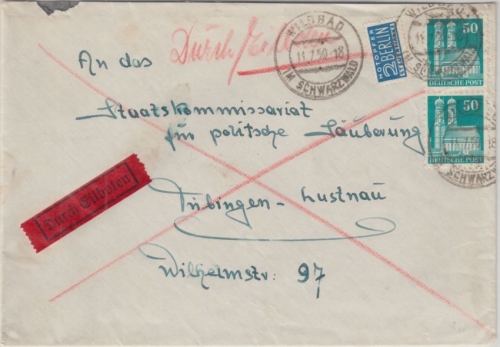 An das
Durch Eilboten
WILDBAD
11.7.50.-18
IM SCHWARZWALD
NOTOPFER
2 BERLIN
STEUERMARKE
WILDBAD
IM SCHWARZWALD
50
DEUTSCHE POST
50
DEUTSCHE POST
SCHWARZWALD
Staatskommissariat
für politsche Säuberung
Durch Eilboten
Tübingen-Lustnau
Wilhelmstr. 97